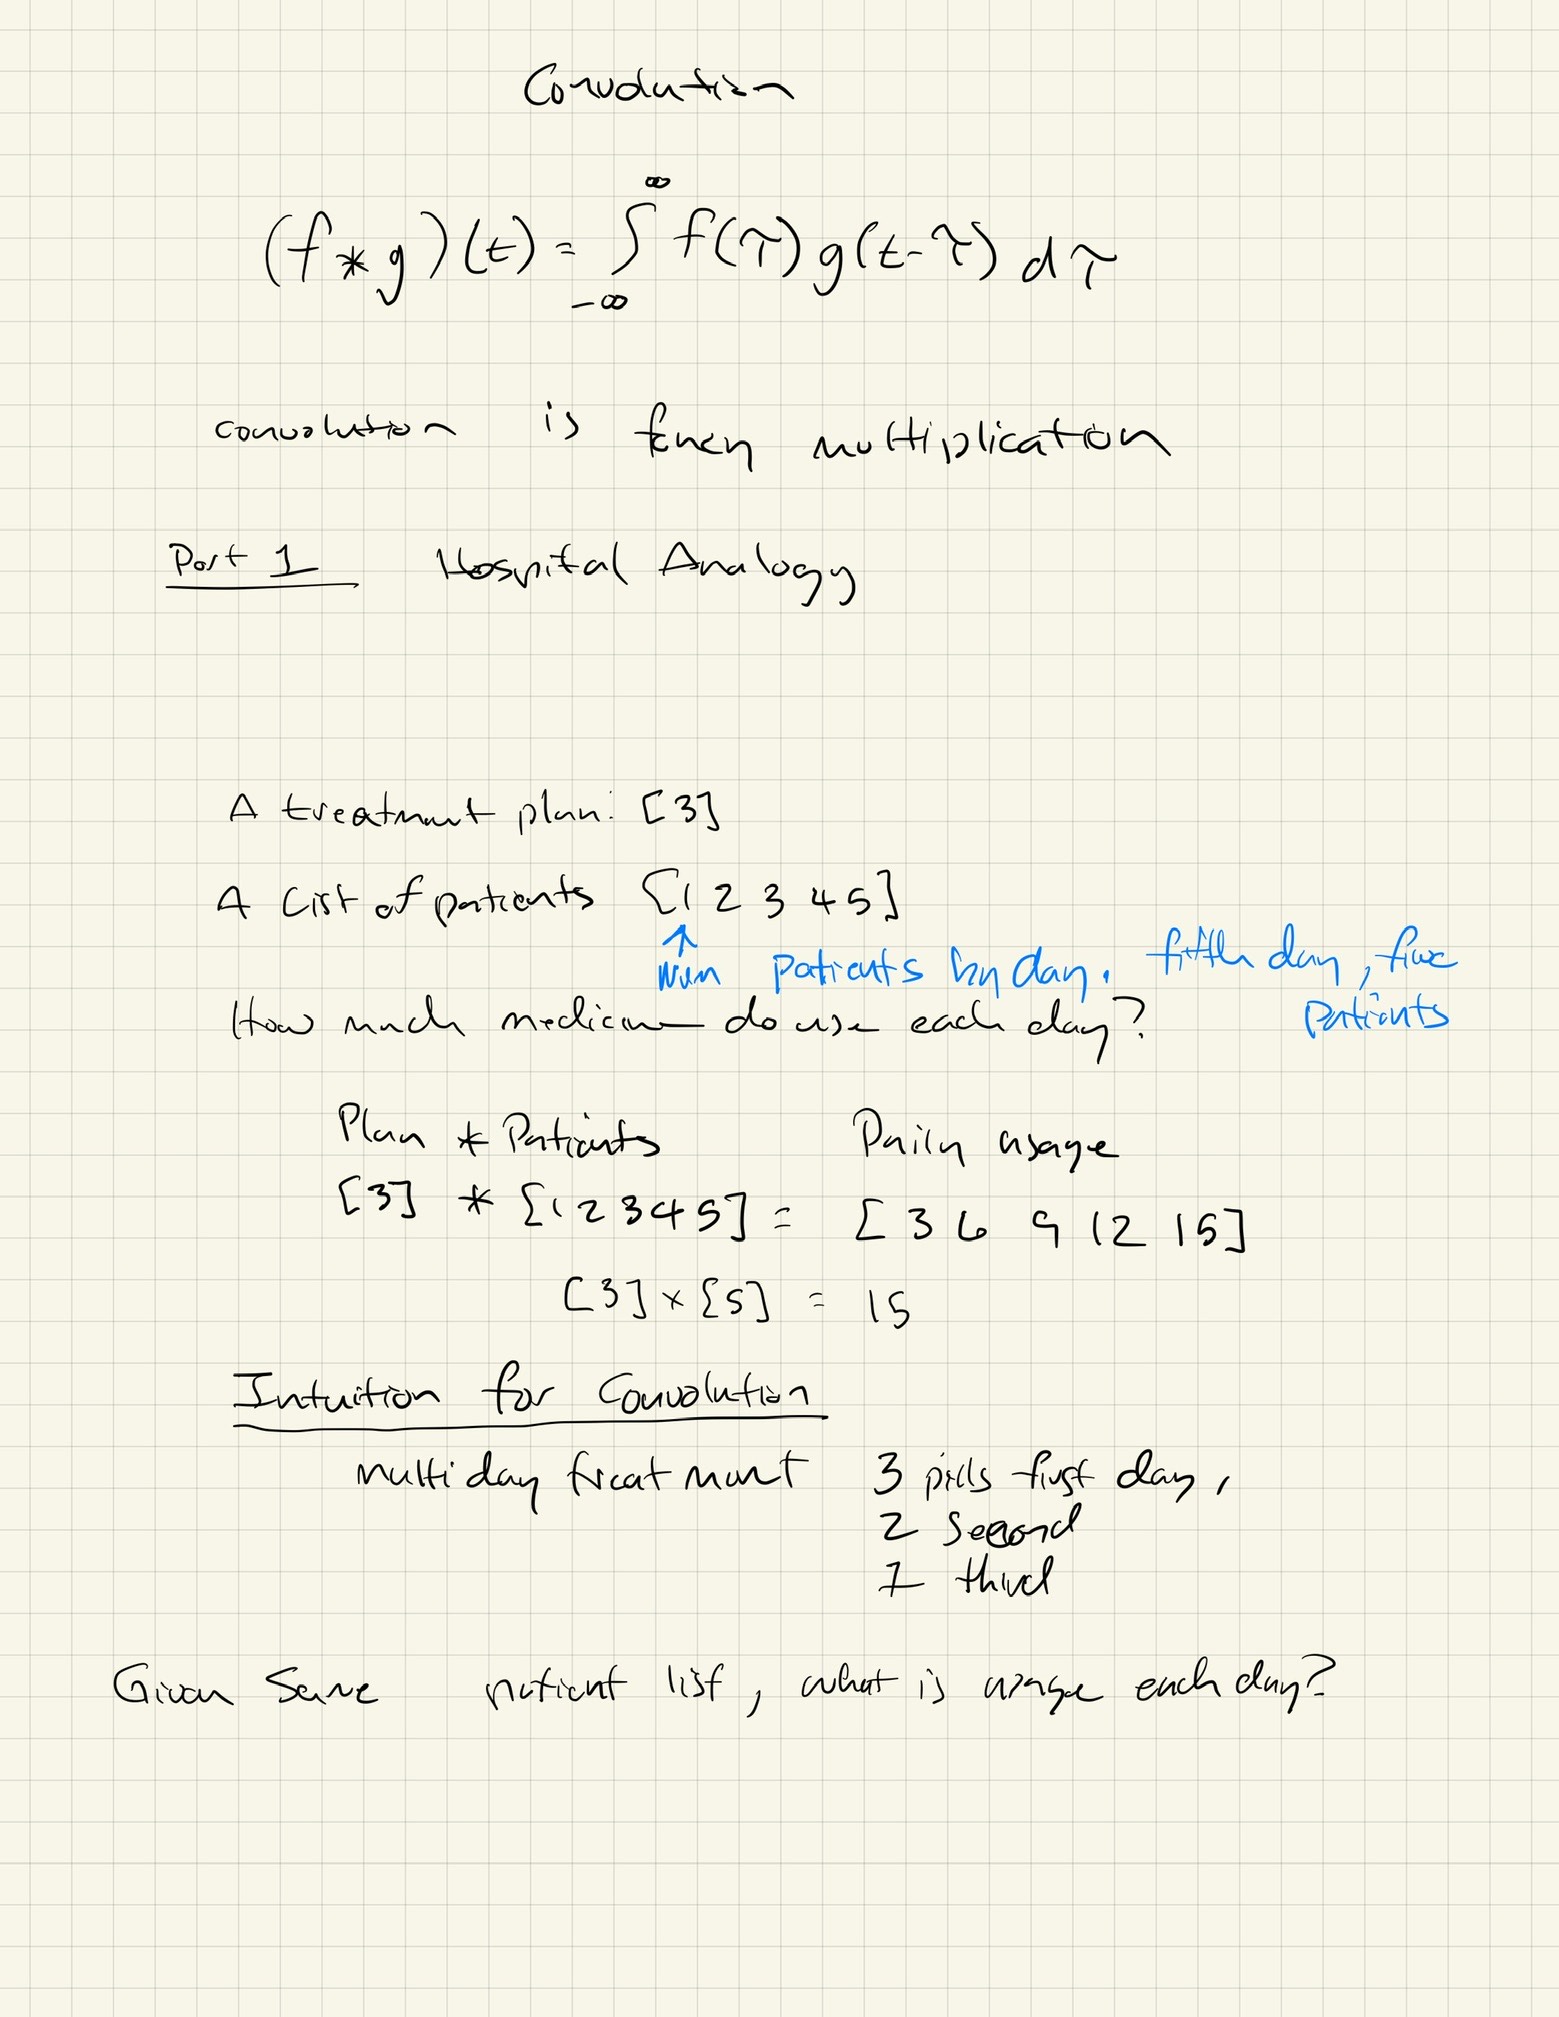 Convolution
(f*g)(t) = ∫_{-∞}^{∞} f(τ) g(t-τ) dτ
convolution is fancy multiplication
Part 1 Hospital Analogy
A treatment plan: [3]
A list of patients [1 2 3 4 5]
↑
num patients by day. fifth day, five
patients
How much medicine do use each day?
Plan * Patients Daily usage
[3] * [1 2 3 4 5] = [3 6 9 12 15]
[3] × [5] = 15
Intuition for Convolution
multiday treatment 3 pills first day,
2 second
1 third
Given same patient list, what is usage each day?